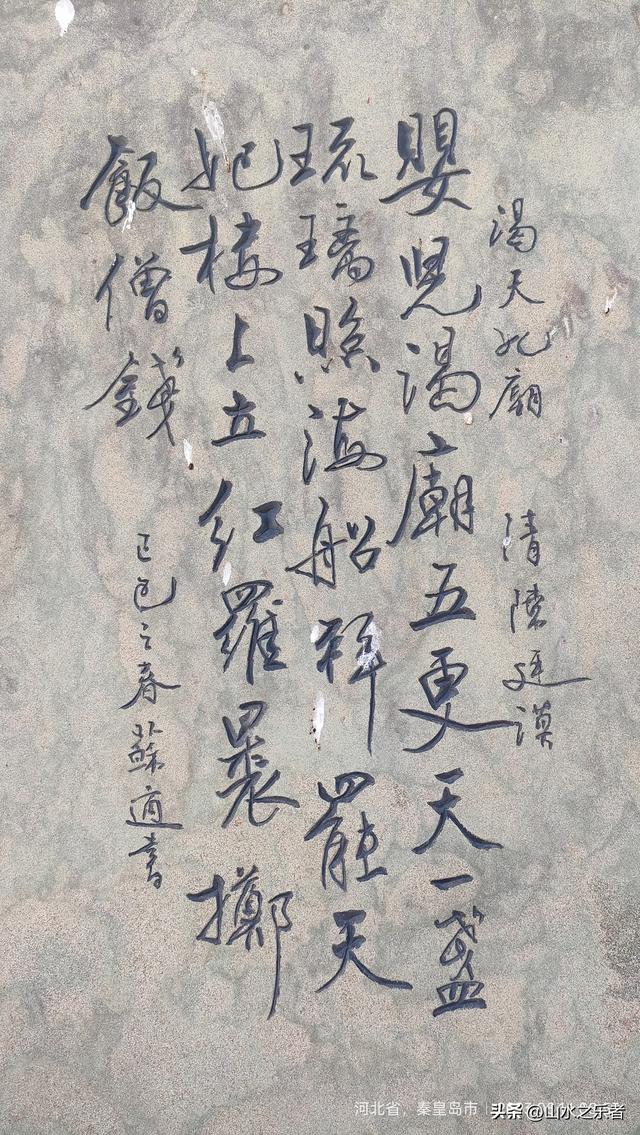 謁天妃廟
清 陳廷謨
嬰兒謁廟五更天一盞
琉璃照海船拜罷天
妃樓上立紅羅裹擲
飯僧錢
己巳之春蘇適書
河北省，秦皇岛市
头条 @山水之乐者